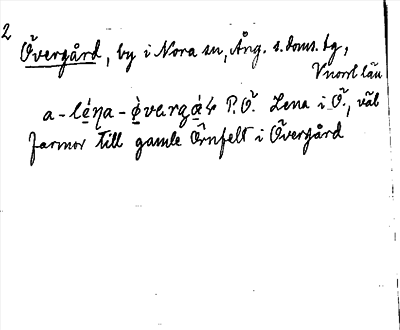 2
Övergård, by i Nora sn, Ång. s. doms. tg,
Vnorrl län
a-lé̱ŋa-ö̱̀vərgǻ̱ɽ P.Ö. Lena i Ö., väl
farmor till gamle Örnfelt i Övergård